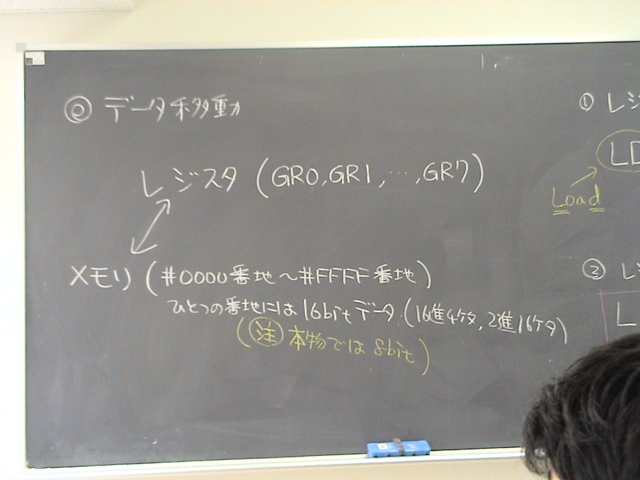 ◎ データ移動
レジスタ (GR0, GR1, …, GR7)
メモリ (#0000番地〜#FFFF番地)
ひとつの番地には16bitデータ (16進4ケタ, 2進16ケタ)
(注 本物では8bit)
① レジ
LD
Load
② レジ
L